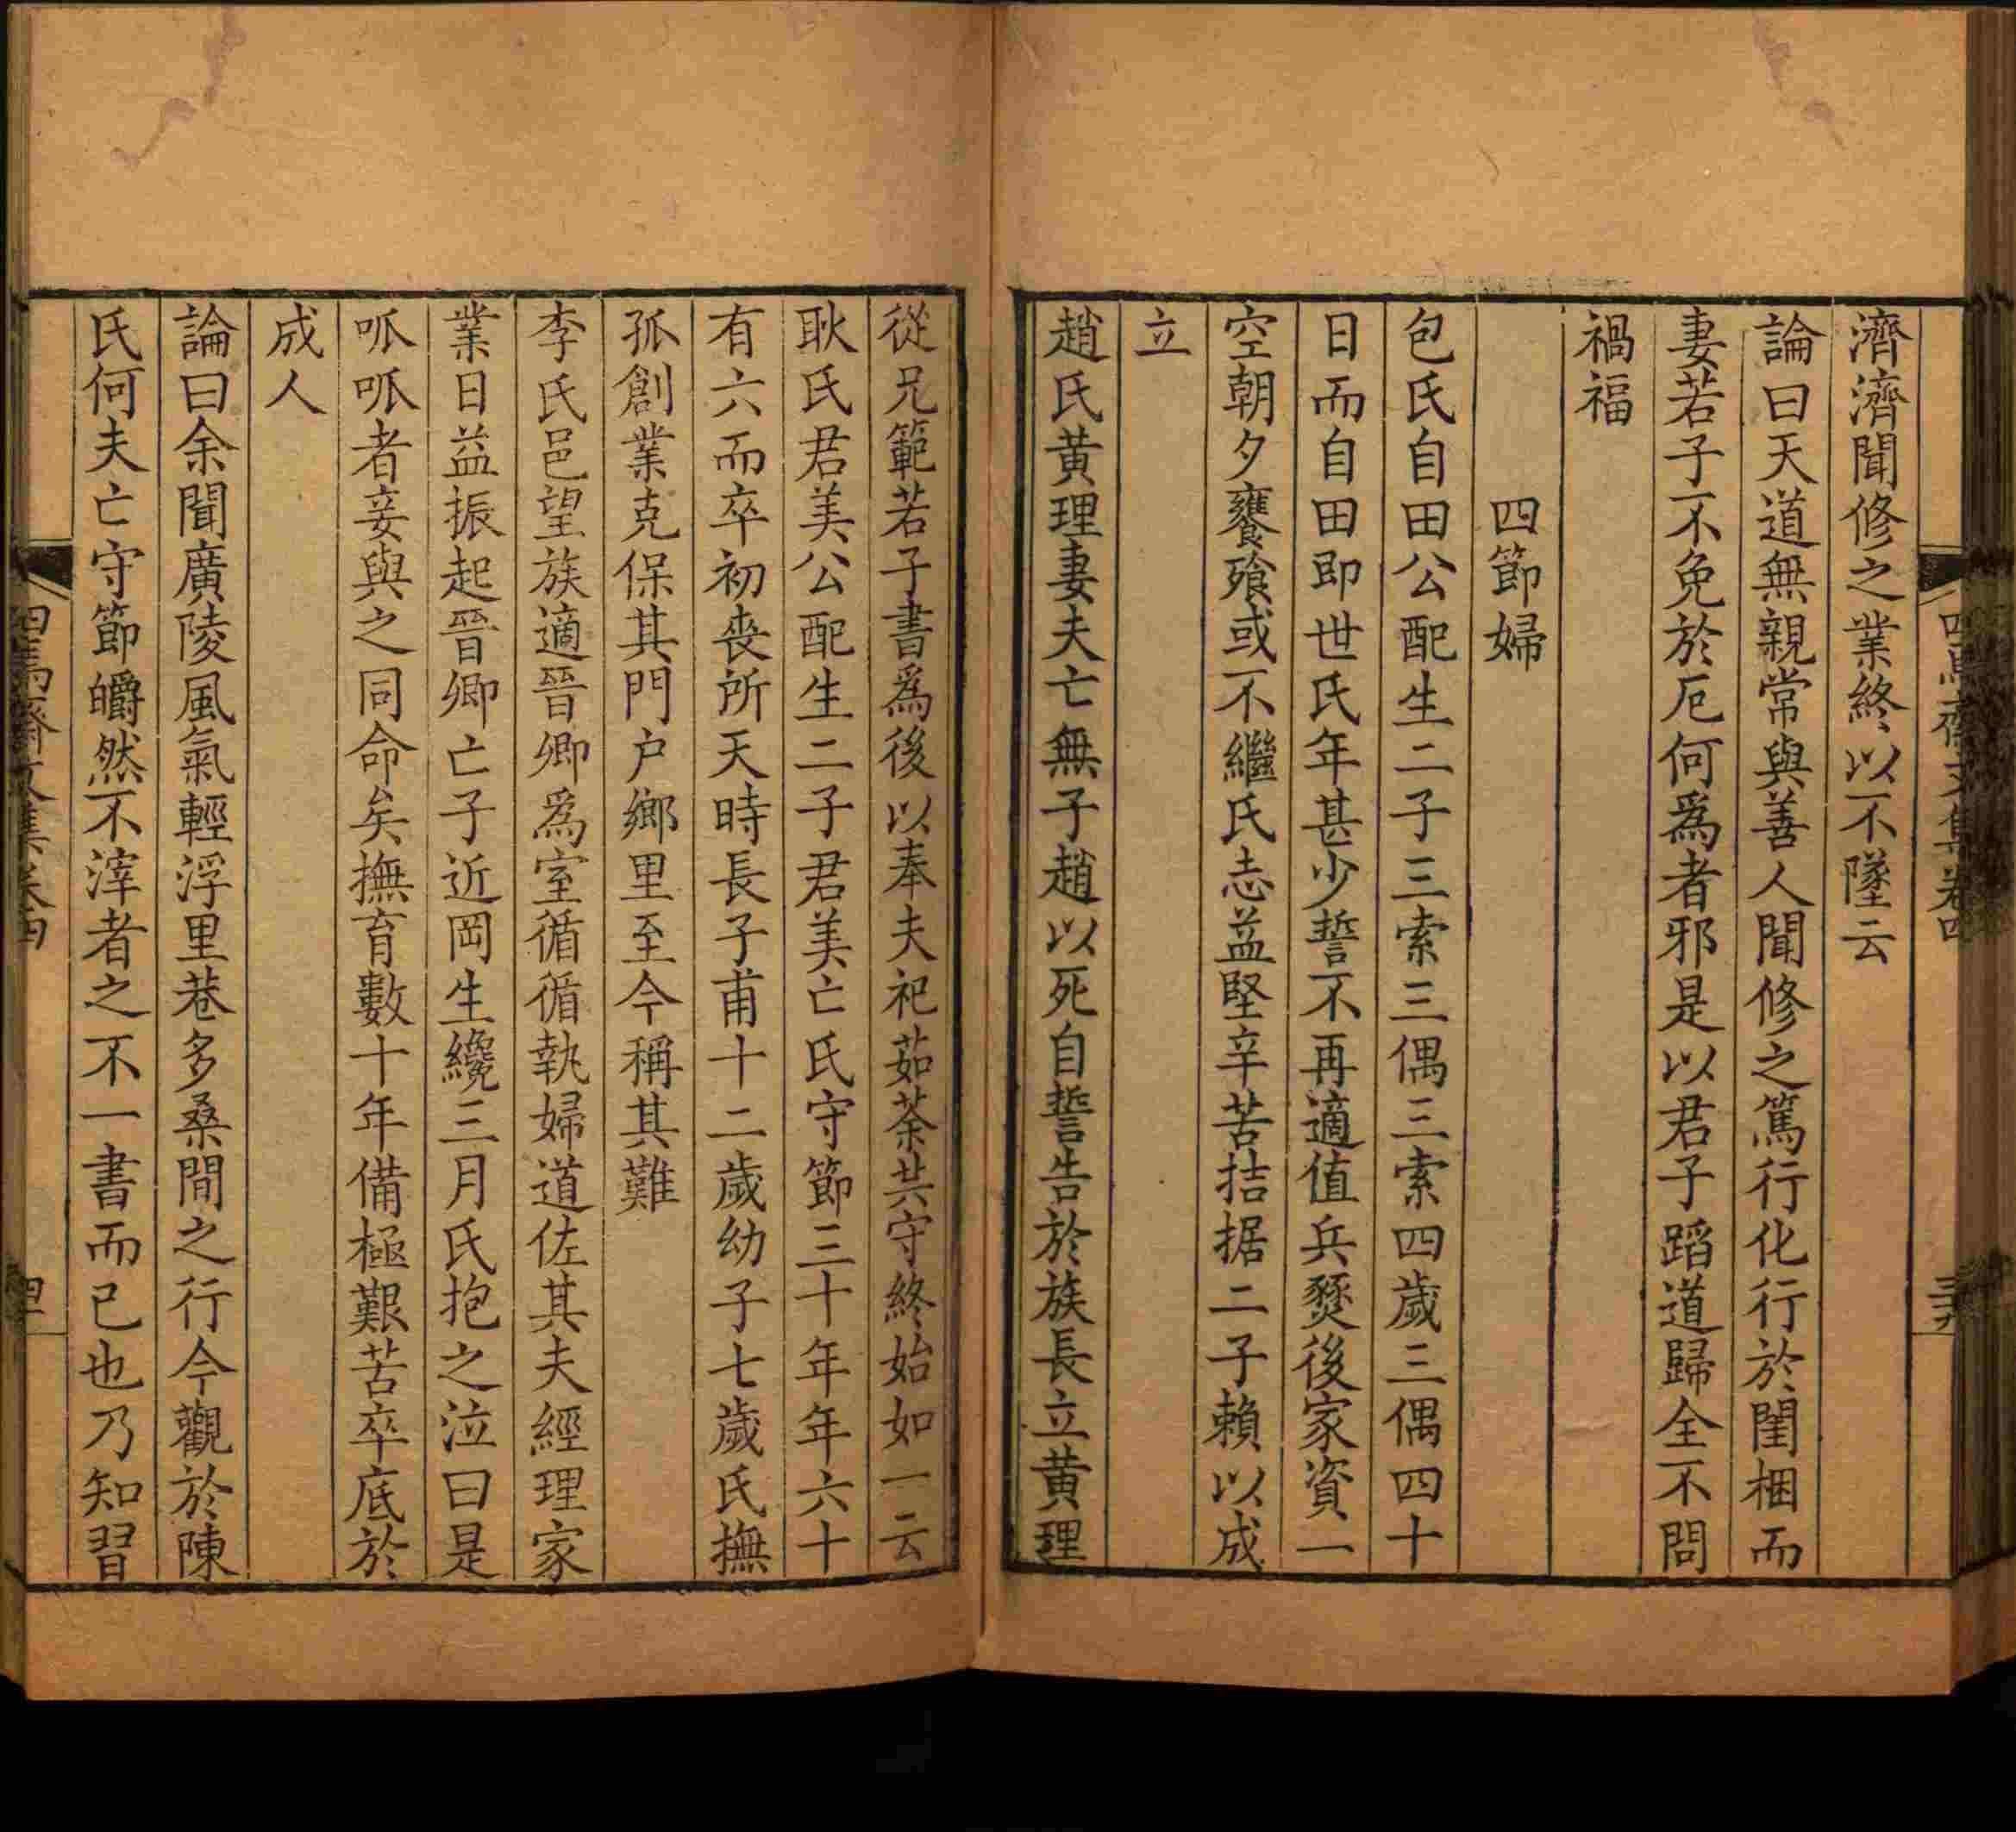 濟濟聞修之業終以不墜云
論曰天道無親常與善人聞修之篤行化行於閨梱而
妻若子不免於厄何爲者邪是以君子蹈道歸全不問
禍福
四節婦
包氏自田公配生二子三索三偶三索四歲三偶四十
日而自田即世氏年甚少誓不再適值兵燹後家資一
空朝夕饔飱或不繼氏志益堅辛苦拮据二子賴以成
立
趙氏黃理妻夫亡無子趙以死自誓告於族長立黃理
從兄範若子書爲後以奉夫祀茹荼共守終始如一云
耿氏君美公配生二子君美亡氏守節三十年年六十
有六而卒初喪所天時長子甫十二歲幼子七歲氏撫
孤創業克保其門户鄉里至今稱其難
李氏邑望族適晉卿爲室循循執婦道佐其夫經理家
業日益振起晉卿亡子近岡生纔三月氏抱之泣曰是
呱呱者妾與之同命矣撫育數十年備極艱苦卒底於
成人
論曰余聞廣陵風氣輕浮里巷多桑間之行今觀於陳
氏何夫亡守節皭然不滓者之不一書而已也乃知習